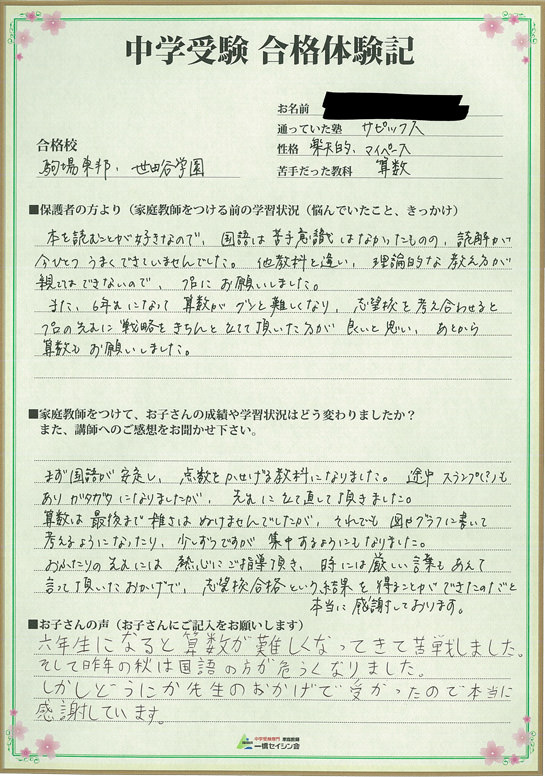 中学受験 合格体験記
お名前
通っていた塾 サピックス
性格 楽天的、マイペース
苦手だった教科 算数
合格校
駒場東邦、世田谷学園
■保護者の方より（家庭教師をつける前の学習状況（悩んでいたこと、きっかけ）
本を読むことが好きなので、国語は苦手意識はなかったものの、読解が
今ひとつうまくできていませんでした。他教科と違い、理論的な教え方が
親ではできないので、プロにお願いしました。
また、6年生になって算数がグンと難しくなり、志望校を考え合わせると
プロの先生に戦略をきちんと立てて頂いた方が良いと思い、あとから
算数もお願いしました。
■家庭教師をつけて、お子さんの成績や学習状況はどう変わりましたか？
また、講師へのご感想をお聞かせ下さい。
まず国語が安定し、点数をかせげる教科になりました。途中スランプ(?)も
ありガタガタになりましたが、先生に立て直して頂きました。
算数は最後まで雑さはぬけませんでしたが、それでも図やグラフに書いて
考えるようになったり、少しずつですが集中するようにもなりました。
おふたりの先生には熱心にご指導頂き、時には厳しい言葉もあえて
言って頂いたおかげで、志望校合格という結果を得ることができたのだと
本当に感謝しております。
■お子さんの声（お子さんにご記入をお願いします）
六年生になると算数が難しくなってきて苦戦しました。
そして昨年の秋は国語の方が危うくなりました。
しかしどうにか先生のおかげで受かったので本当に
感謝しています。
中学受験専門 家庭教師
一橋セイシン会